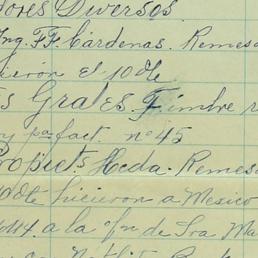 dores Diversos.
Ing. F.F. Cárdenas. Remesa
hicieron el 10 dte
s Grales. Timbre r
pa fact. nº 45
Propiets. Hcda. Remesa
10 dte hicieron a Mexico
a la of'n de Sra Ma